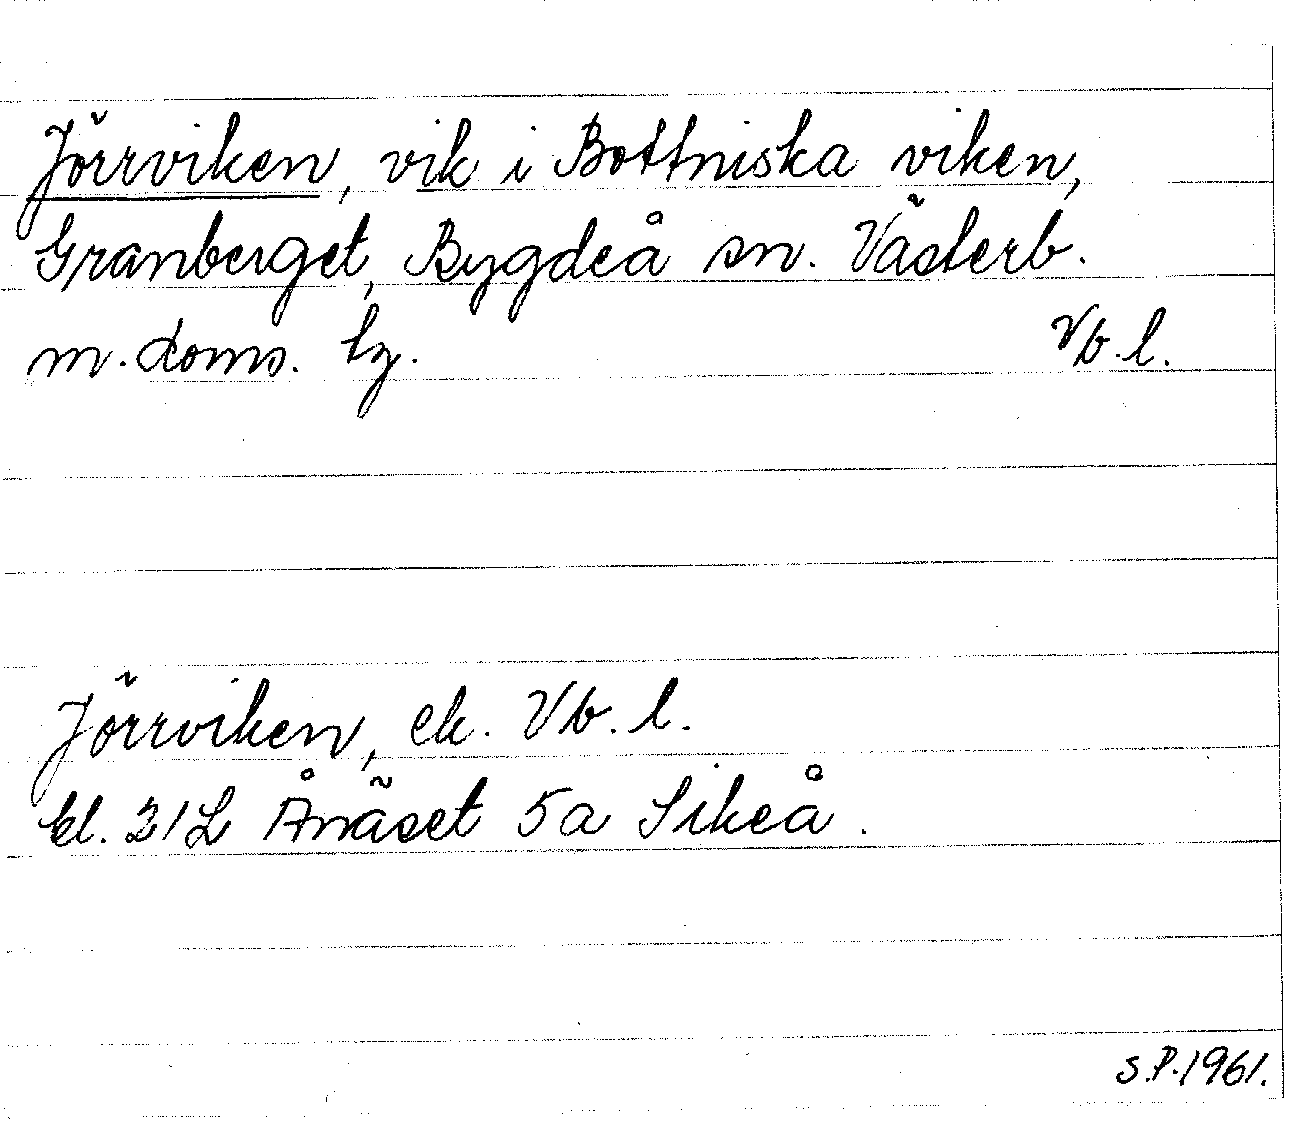 Jörrviken, vik i Bottniska viken,
Granberget, Bygdeå sn. Västerb.
m. doms. lg. Vb. l.
Jörrviken, ek. Vb. l.
bl. 21L Ånäset 5a Sikeå.
S.P. 1961.